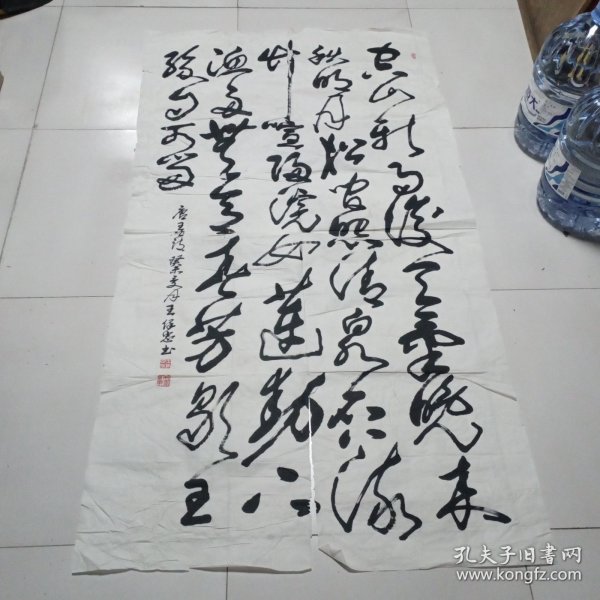 空山新雨后天气晚来
秋明月松间照清泉石上流
竹喧归浣女莲动下
渔舟随意春芳歇王
孙自可留
唐 王 书
孔夫子旧书网
www.kongfz.com